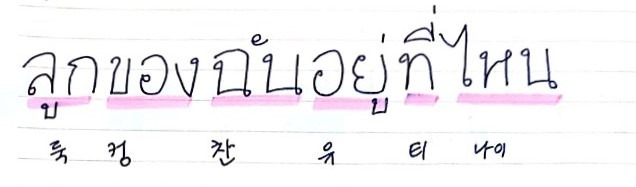 ลูกของฉันอยู่ที่ไหน
룩 컹 찬 유 티 나이